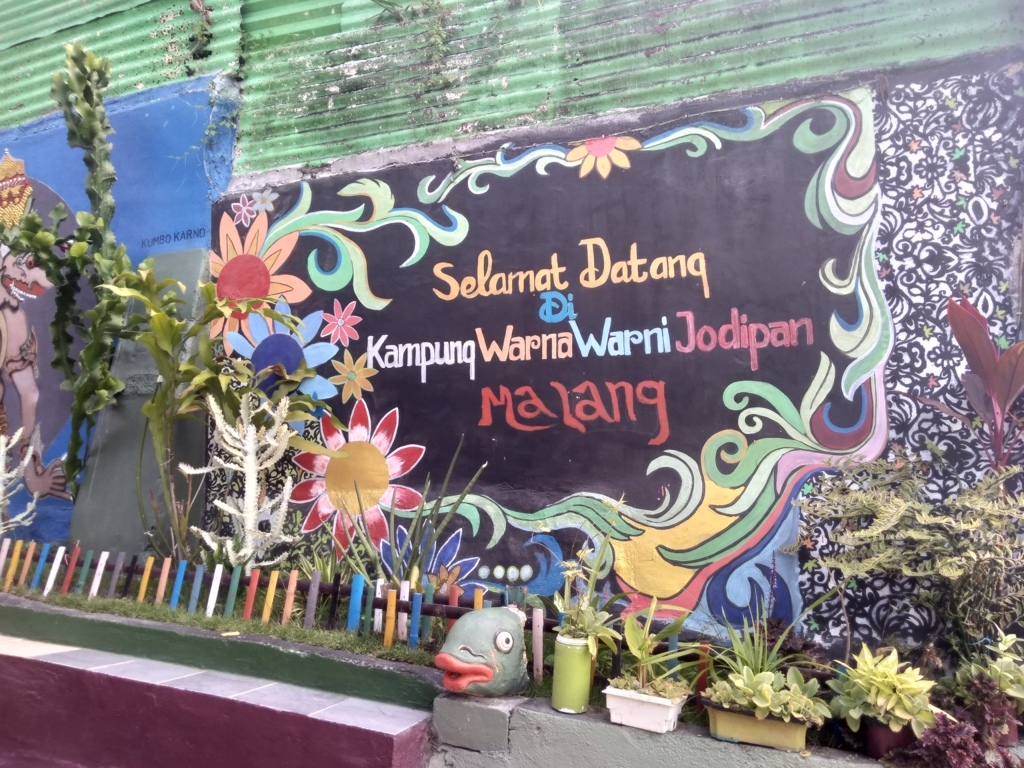 KUMBO KARNO
Selamat Datang
Di
Kampung Warna Warni Jodipan
Malang